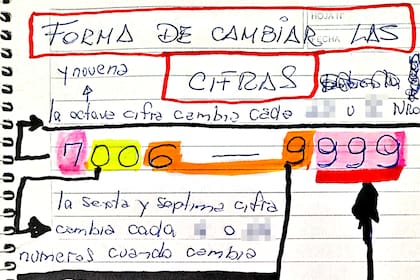 HOJA Nº
FECHA
FORMA DE CAMBIAR LAS
CIFRAS
y novena
la octava cifra cambia cada u Nros
7006 — 9999
la sexta y septima cifra
cambia cada o
numeros cuando cambia